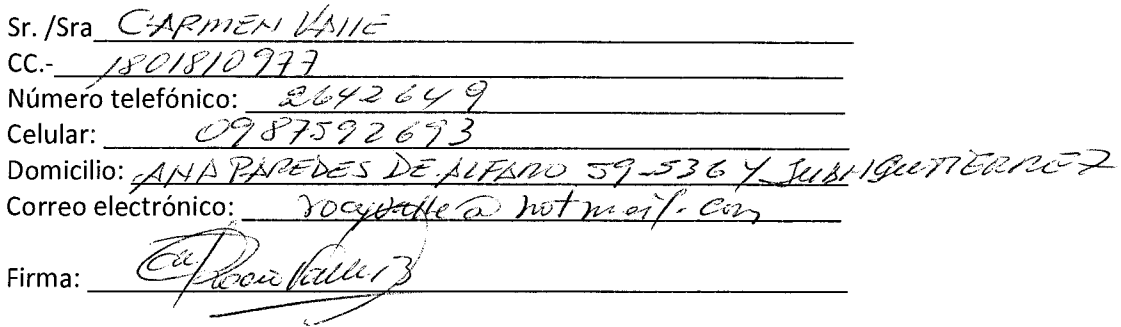 Sr. /Sra CARMEN VALLE
CC.- 1801810977
Número telefónico: 2642649
Celular: 0987592693
Domicilio: ANA PAREDES DE ALFARO 59-536 Y JUAN GUTIERREZ
Correo electrónico: rocyvalle@hotmail.com
Firma: Rocio Valle